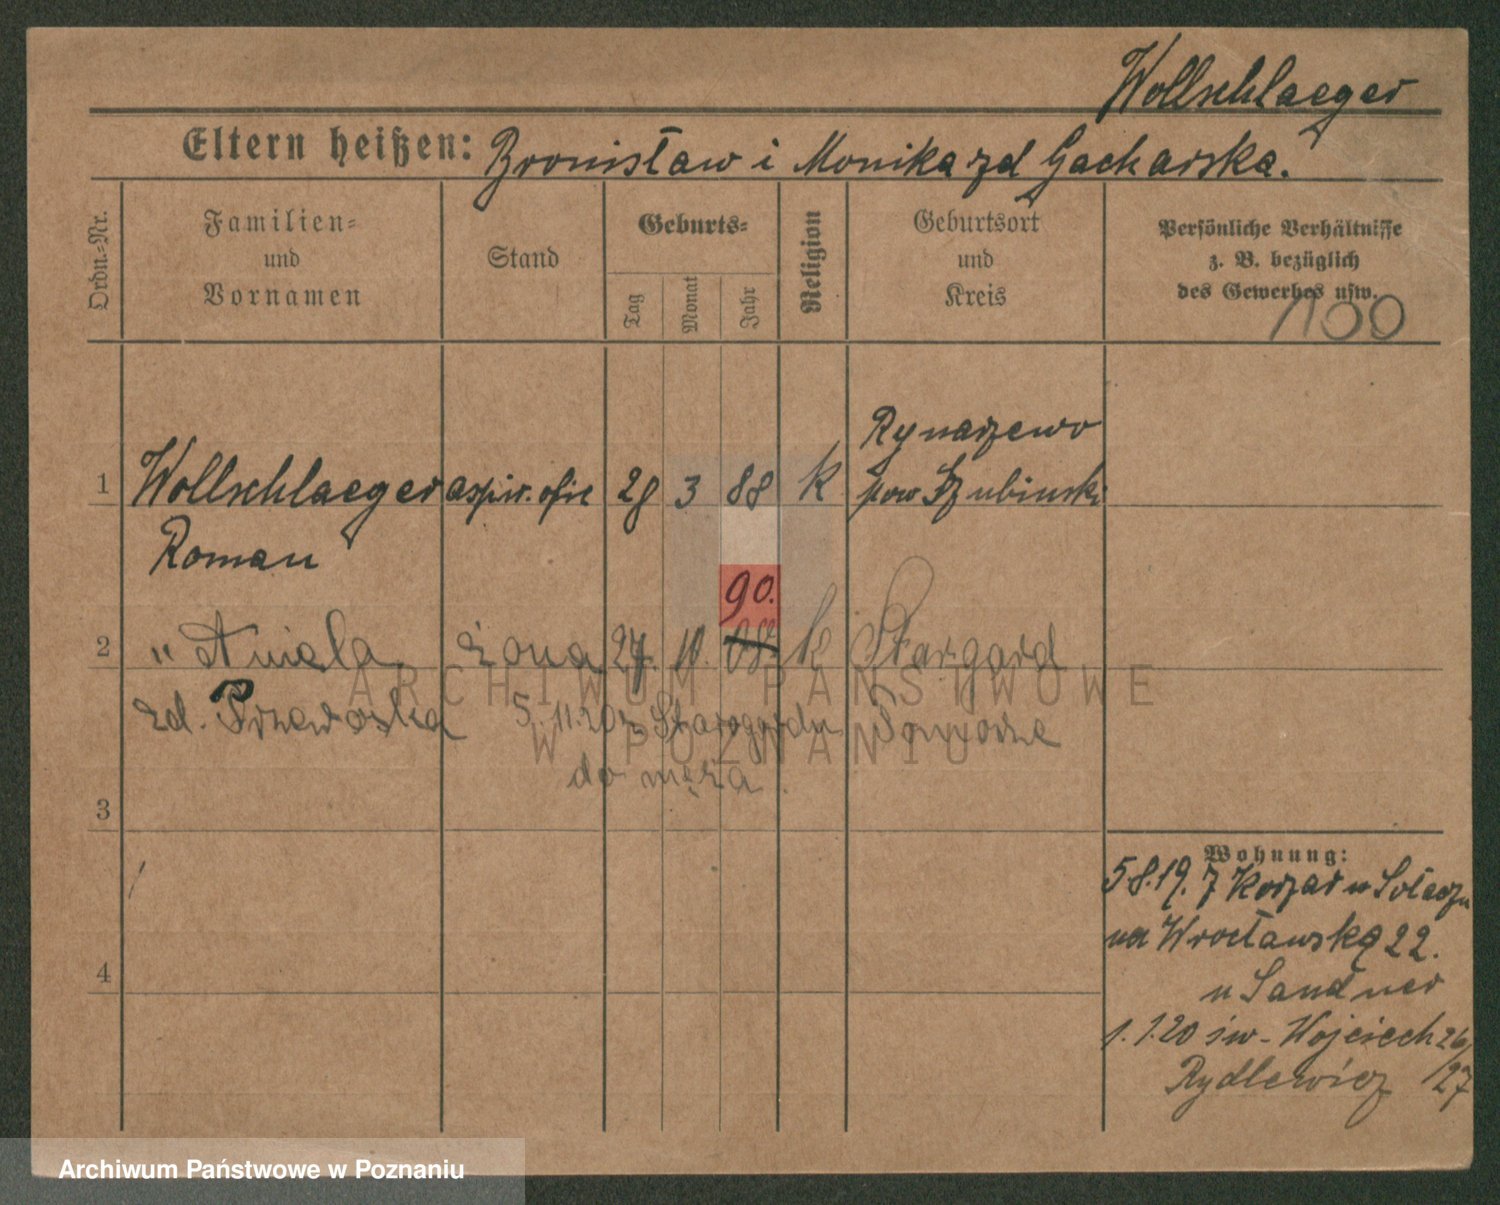 Wollschlaeger
Eltern heißen: Bronisław i Monika zd Gacharska.
Ordn.-Nr.
Familien- und Vornamen
Stand
Geburts-
Tag
Monat
Jahr
Religion
Geburtsort und Kreis
Persönliche Verhältnisse
z. B. bezüglich
des Gewerbes usw.
100
Rynarzewo
1 Wollschlaeger aspir. ofic 28 3 88 k pow. Szubinski
Roman
90.
2 " Aniela żona 27. 11. 08. k Stargard
zd. Przewoska 5.11.20 z Starogardu Pomorze
do męża.
3
Wohnung:
5.8.19. 7 Korzar w Sołaczu
na Wrocławską 22.
u Sandner
4
1.1.20 św. Wojciech 26/27
Rydlewicz
ARCHIWUM PAŃSTWOWE
W POZNANIU
Archiwum Państwowe w Poznaniu